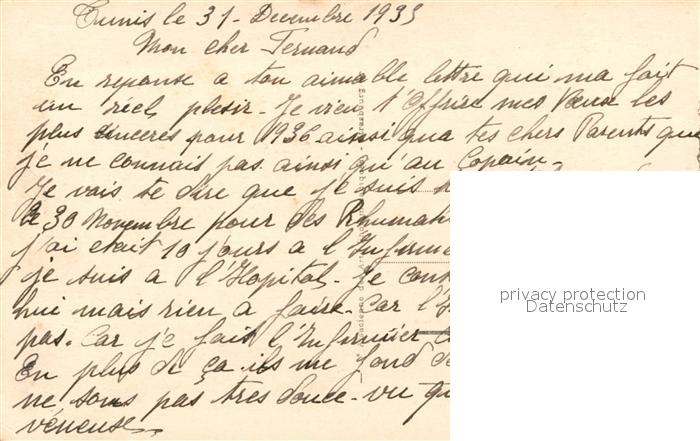 Tunis le 31 - Decembre 1935
Mon cher Fernand
En reponse a ton aimable lettre qui ma fait
un réel plesir - Je vien t'Offrire mes Vœux les
plus sinceres pour 1936 ainsi qua tes chers Parents que
je ne connais pas ainsi qu'au Copain -
Je vais te dire que je suis
le 30 Novembre pour des Rhumat
j'ai etait 10 jours a l'Infirme
je suis a l'Hopital. Je con
hui mais rien a faire. Car l'
pas. Car je fais l'Infirmier
En plus de ça ils me fond de
ne sons pas tres douce - vu qu
véneuse
privacy protection
Datenschutz